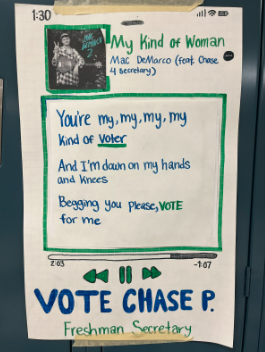 1:30
My Kind of Woman
Mac DeMarco (feat. Chase
4 Secretary)
MAC
DEMARCO
2
You're my, my, my, my
kind of voter
And I'm down on my hands
and knees
Begging you please, VOTE
for me
2:03
-1:07
VOTE CHASE P.
Freshman Secretary